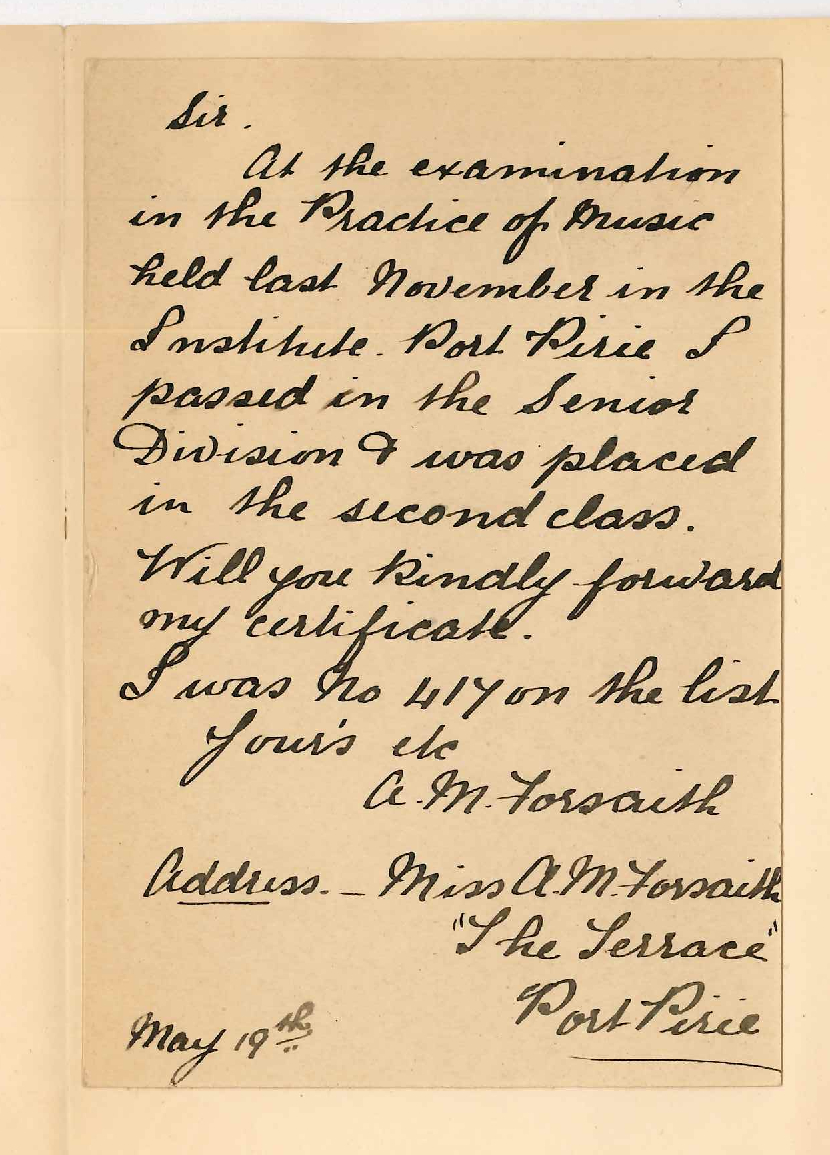 Sir.
At the examination
in the Practice of Music
held last November in the
Institute. Port Pirie I
passed in the Senior
Division & was placed
in the second class.
Will you kindly forward
my certificate.
I was No 417 on the list
Your's etc
A. M. Forsaith
Address. - Miss A. M. Forsaith
"The Terrace"
Port Pirie
May 19th